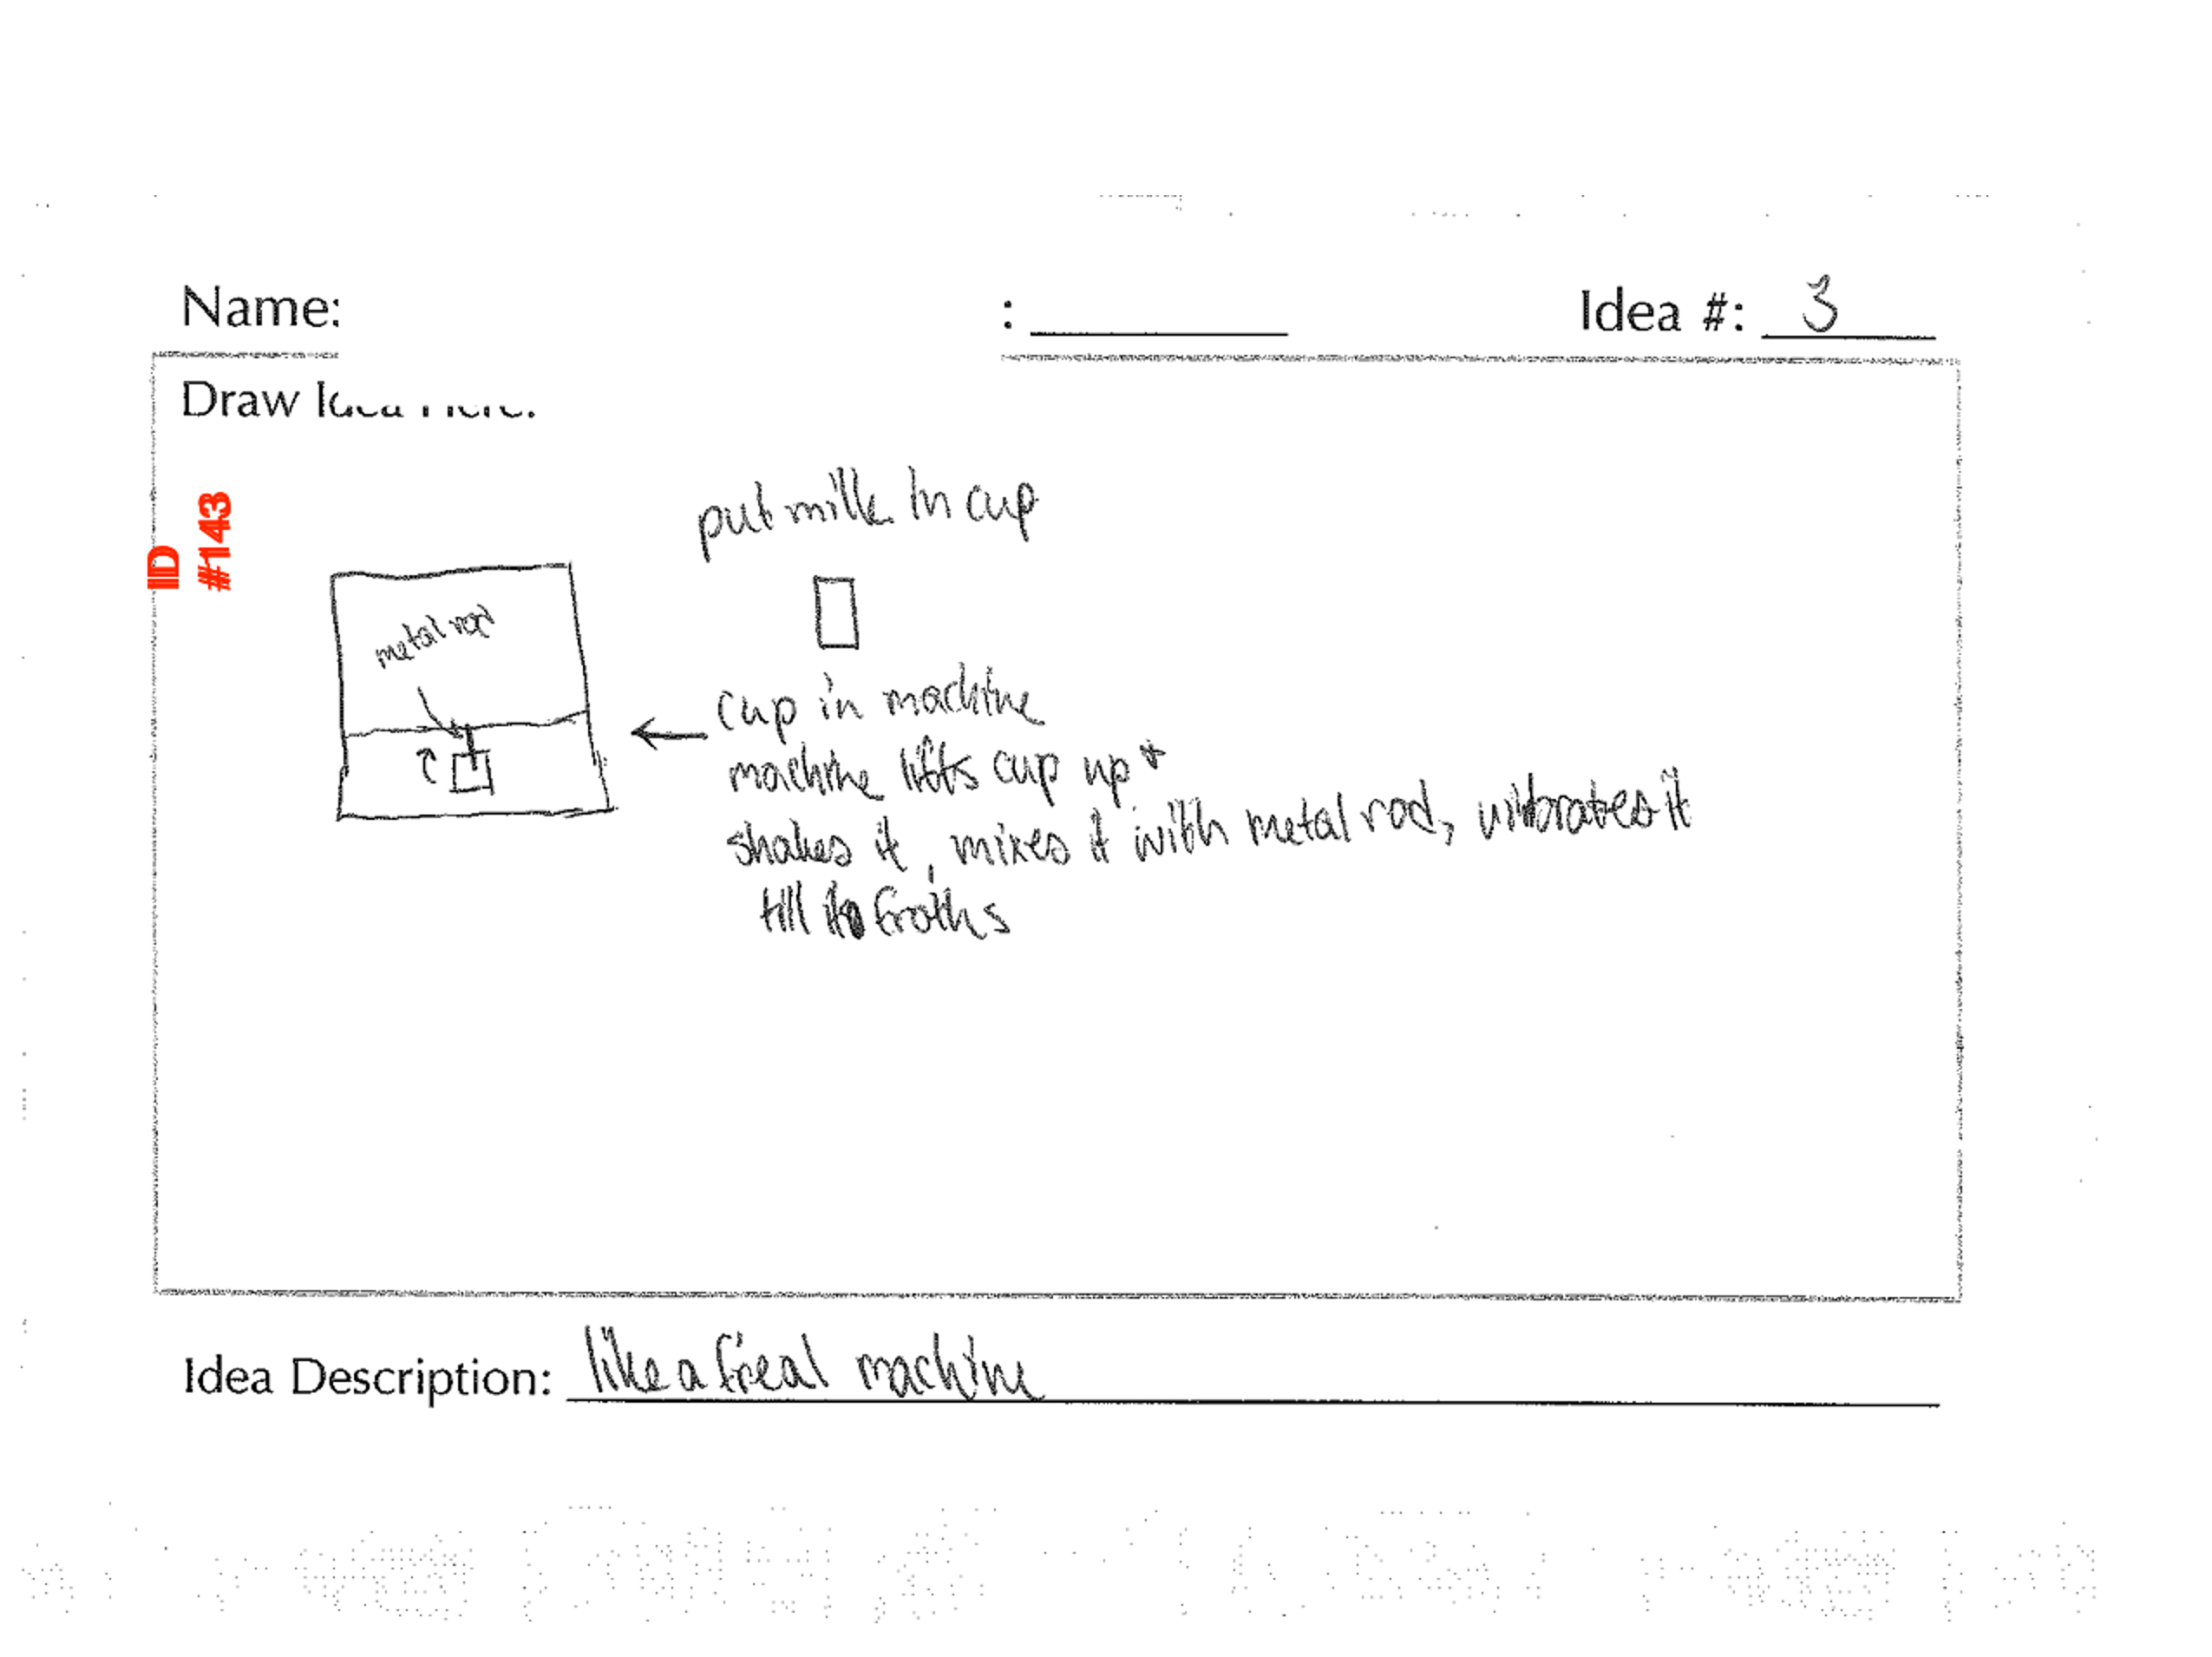 Name:
: Idea #: 3
Draw Idea Here:
ID
#143
put milk in cup
metal rod
cup in machine
machine lifts cup up +
shakes it, mixes it with metal rod, vibrates it
till it froths
Idea Description: like a freal machine